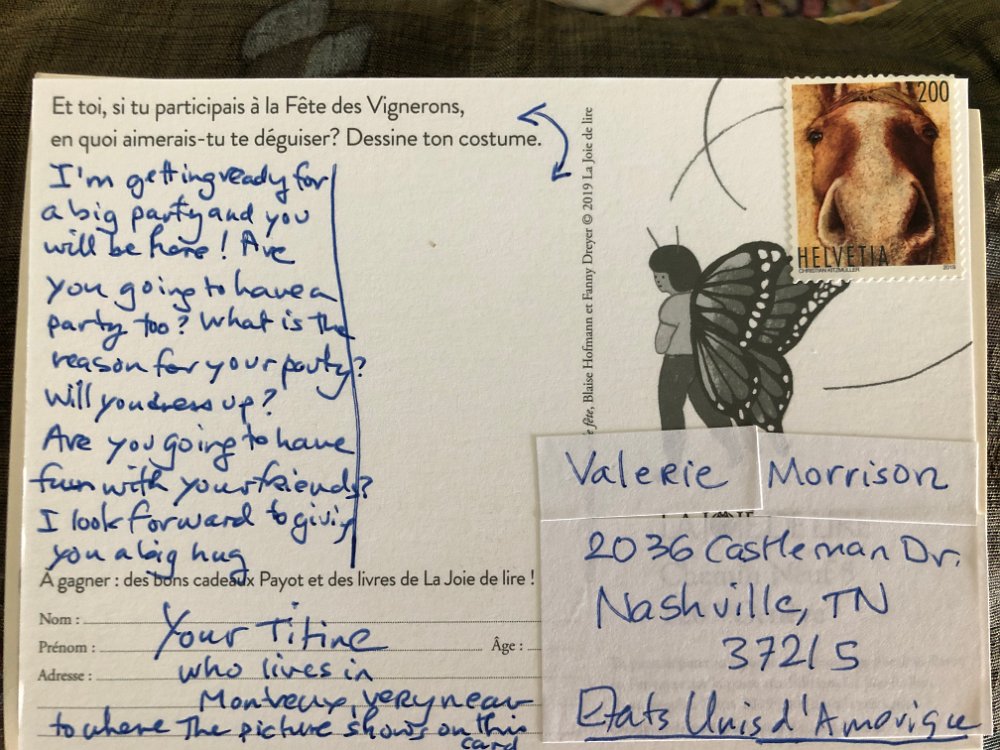 Et toi, si tu participais à la Fête des Vignerons,
en quoi aimerais-tu te déguiser? Dessine ton costume.
I'm getting ready for
a big party and you
will be here! Are
you going to have a
party too? What is the
reason for your party?
Will you dress up?
Are you going to have
fun with your friends?
I look forward to givig
you a big hug
A gagner : des bons cadeaux Payot et des livres de La Joie de lire !
Nom :
Prénom :
Âge :
Adresse :
Your Titine
who lives in
Montreux, very near
to where The picture shows on this
card
fête, Blaise Hofmann et Fanny Dreyer © 2019 La Joie de lire
200
HELVETIA
CHRISTIAN KITZMÜLLER
2019
Valerie Morrison
2036 Castleman Dr.
Nashville, TN
37215
Etats Unis d'Amerique